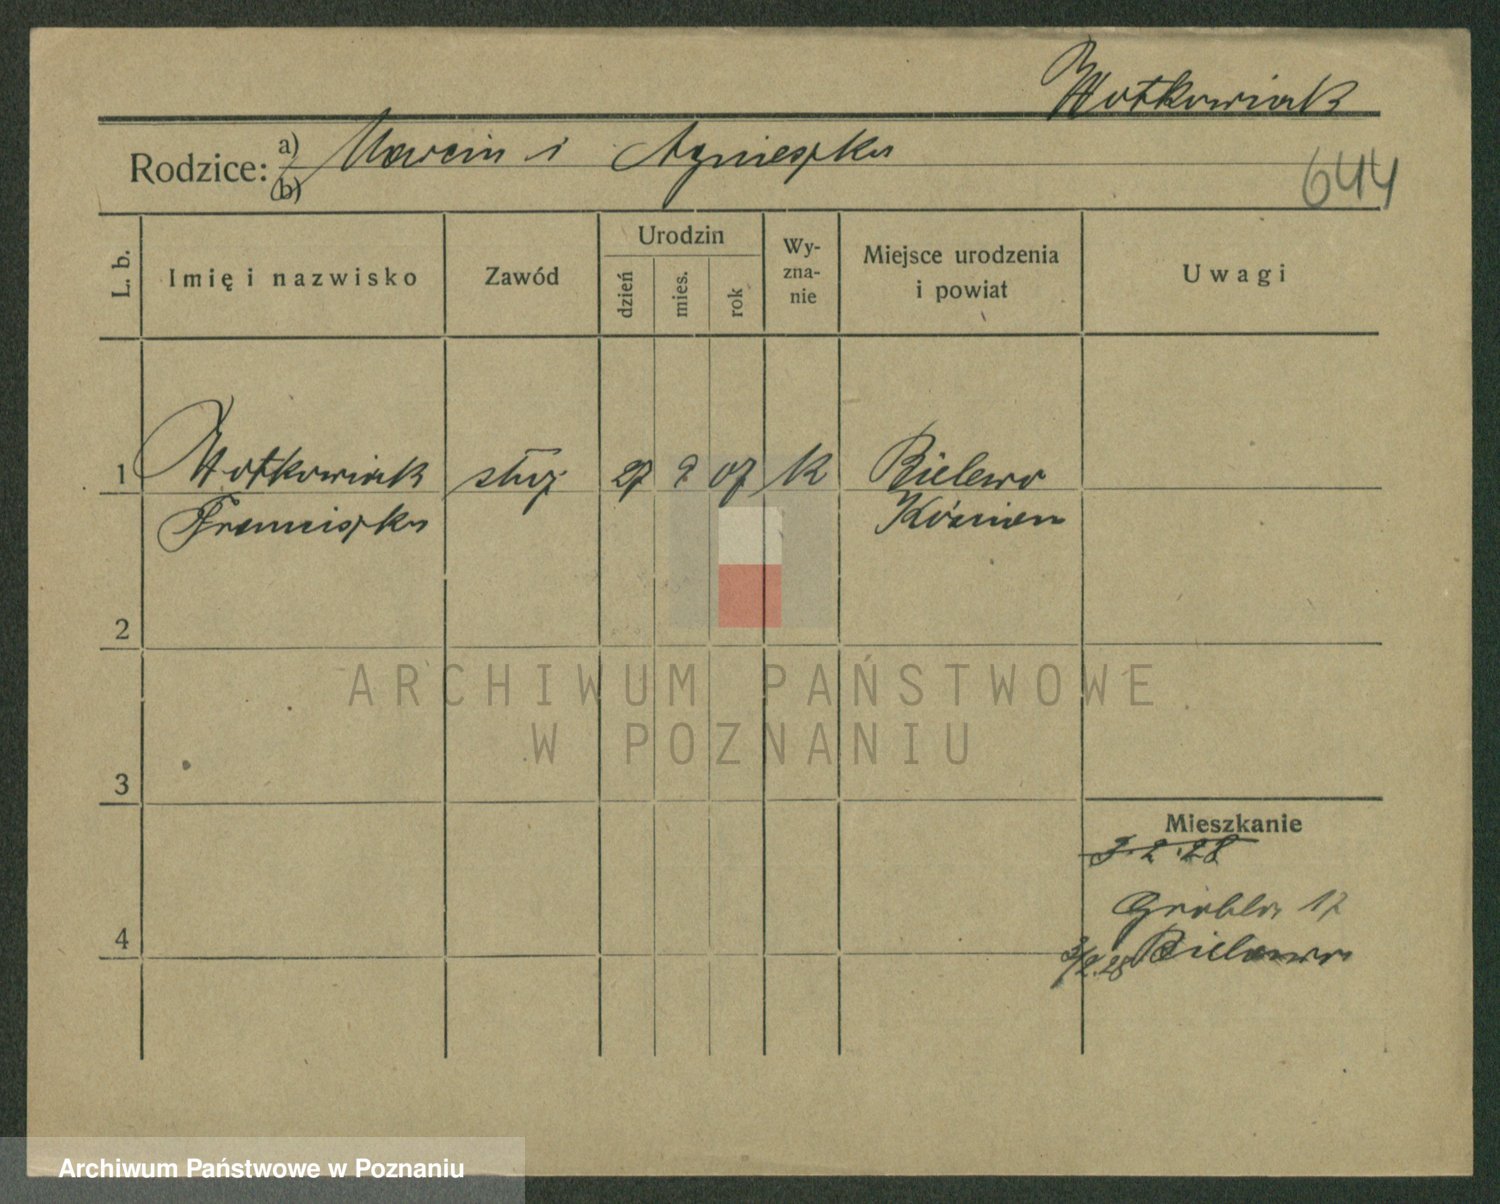 Wotkowiak
Rodzice: a) Marcin i Agnieszka
b)
644
L. b.
Imię i nazwisko
Zawód
Urodzin
dzień
mies.
rok
Wy-
zna-
nie
Miejsce urodzenia
i powiat
Uwagi
1 Wotkowiak służ. 27 9 07 K Bielewo
Franciszka Kościan
2
3
4
Mieszkanie
3.2.28
Grobla 17
3/2.28 Bielewo
ARCHIWUM PAŃSTWOWE
W POZNANIU
Archiwum Państwowe w Poznaniu